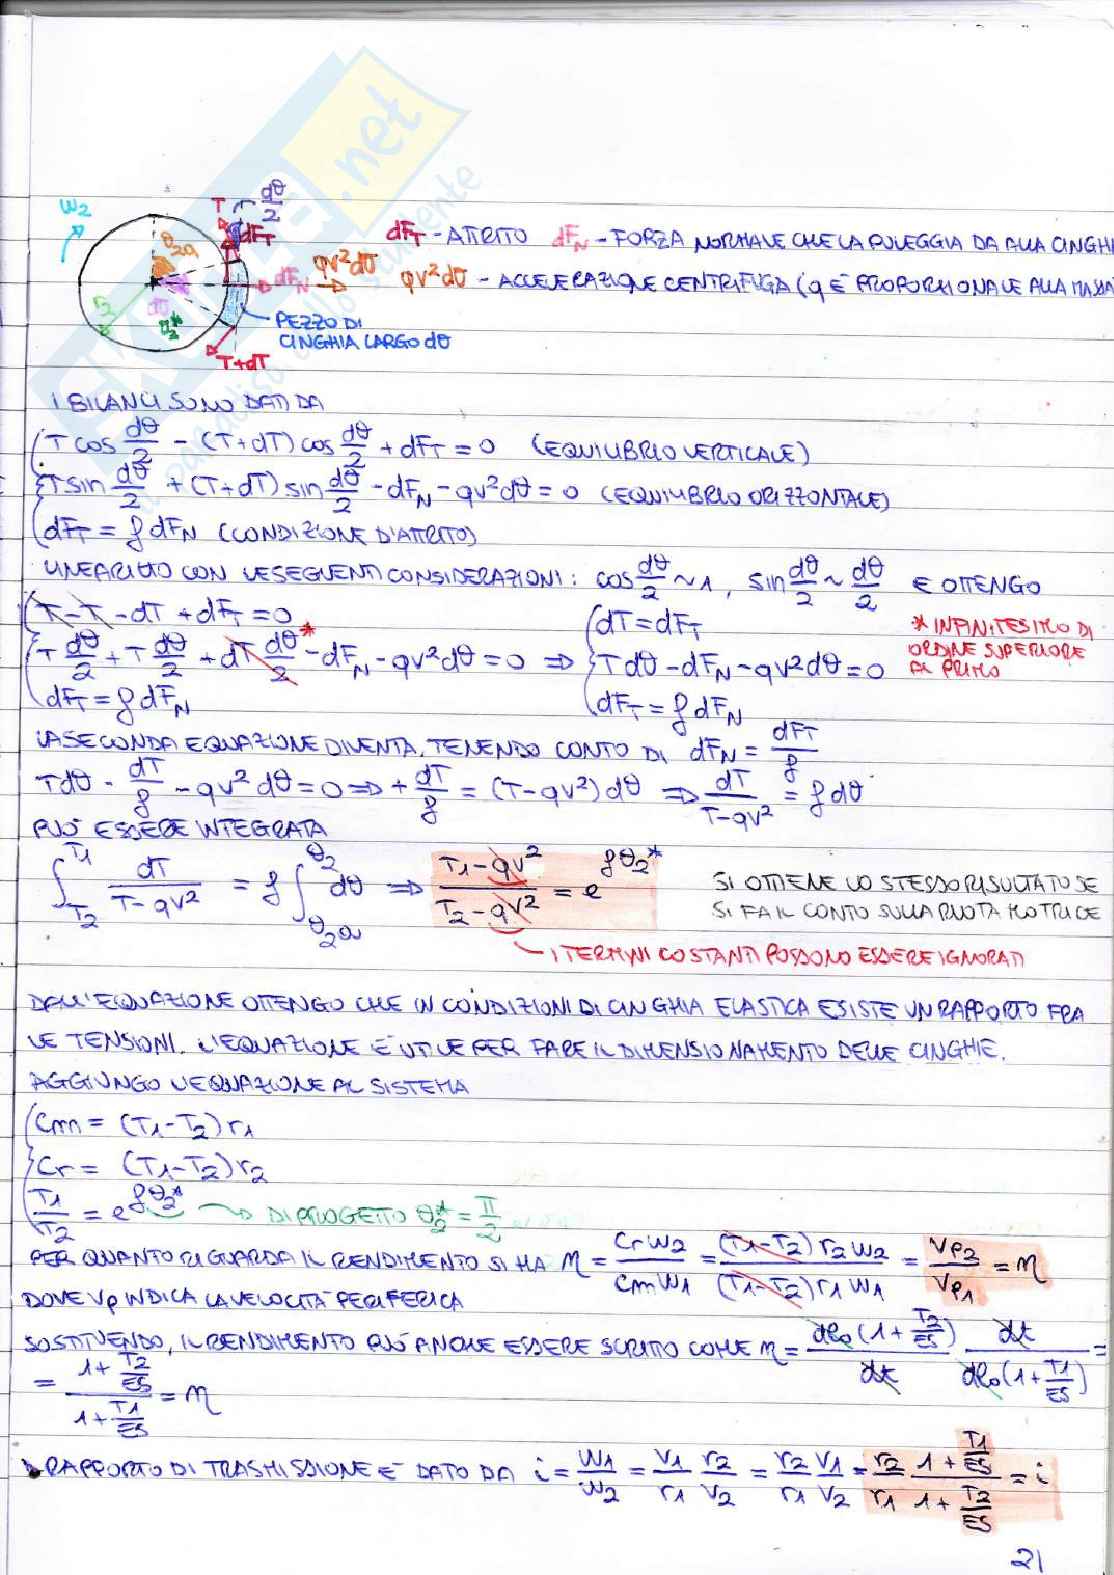 ω2
T
dθ/2
dF_T
θ2a
dF_N
qv²dθ
r2
dθ
θ2*
T+dT
PEZZO DI
CINGHIA LARGO dθ
dF_T - ATTRITO dF_N - FORZA NORMALE CHE LA PULEGGIA DA ALLA CINGHI
qv²dθ - ACCELERAZIONE CENTRIFUGA (q È PROPORZIONALE ALLA MASSA
I BILANCI SONO DATI DA
T cos dθ/2 - (T+dT) cos dθ/2 + dF_T = 0 (EQUILIBRIO VERTICALE)
T sin dθ/2 + (T+dT) sin dθ/2 - dF_N - qv²dθ = 0 (EQUILIBRIO ORIZZONTALE)
dF_T = f dF_N (CONDIZIONE D'ATTRITO)
LINEARIZZO CON LE SEGUENTI CONSIDERAZIONI: cos dθ/2 ~ 1, sin dθ/2 ~ dθ/2 E OTTENGO
T - T - dT + dF_T = 0
T dθ/2 + T dθ/2 + dT dθ/2 * - dF_N - qv²dθ = 0 ⇒
dF_T = f dF_N
dT = dF_T
T dθ - dF_N - qv²dθ = 0
dF_T = f dF_N
* INFINITESIMO DI
ORDINE SUPERIORE
AL PRIMO
LA SECONDA EQUAZIONE DIVENTA, TENENDO CONTO DI dF_N = dF_T/f
T dθ - dT/f - qv²dθ = 0 ⇒ + dT/f = (T - qv²) dθ ⇒ dT/(T - qv²) = f dθ
PUÒ ESSERE INTEGRATA
∫_{T2}^{T1} dT/(T - qv²) = f ∫_{θ2a}^{θ2} dθ ⇒ (T1 - qv²)/(T2 - qv²) = e^{fθ2*}
SI OTTIENE LO STESSO RISULTATO SE
SI FA IL CONTO SULLA RUOTA MOTRICE
I TERMINI COSTANTI POSSONO ESSERE IGNORATI
DALL'EQUAZIONE OTTENGO CHE IN CONDIZIONI DI CINGHIA ELASTICA ESISTE UN RAPPORTO FRA
LE TENSIONI. L'EQUAZIONE È UTILE PER FARE IL DIMENSIONAMENTO DELLE CINGHIE.
AGGIUNGO L'EQUAZIONE AL SISTEMA
Cm = (T1 - T2) r1
Cr = (T1 - T2) r2
T1/T2 = e^{fθ2*} → DI PROGETTO θ2* = π/2
PER QUANTO RIGUARDA IL RENDIMENTO SI HA η = Crω2/Cmω1 = (T1-T2) r2ω2/(T1-T2) r1ω1 = Vp2/Vp1 = η
DOVE Vp INDICA LA VELOCITÀ PERIFERICA
SOSTITUENDO, IL RENDIMENTO PUÒ ANCHE ESSERE SCRITTO COME η = dl0(1 + T2/ES)/dt dt/dl0(1 + T1/ES) =
= (1 + T2/ES)/(1 + T1/ES) = η
RAPPORTO DI TRASMISSIONE È DATO DA i = ω1/ω2 = V1/r1 r2/V2 = r2/r1 V1/V2 = r2/r1 (1 + T1/ES)/(1 + T2/ES) = i
21